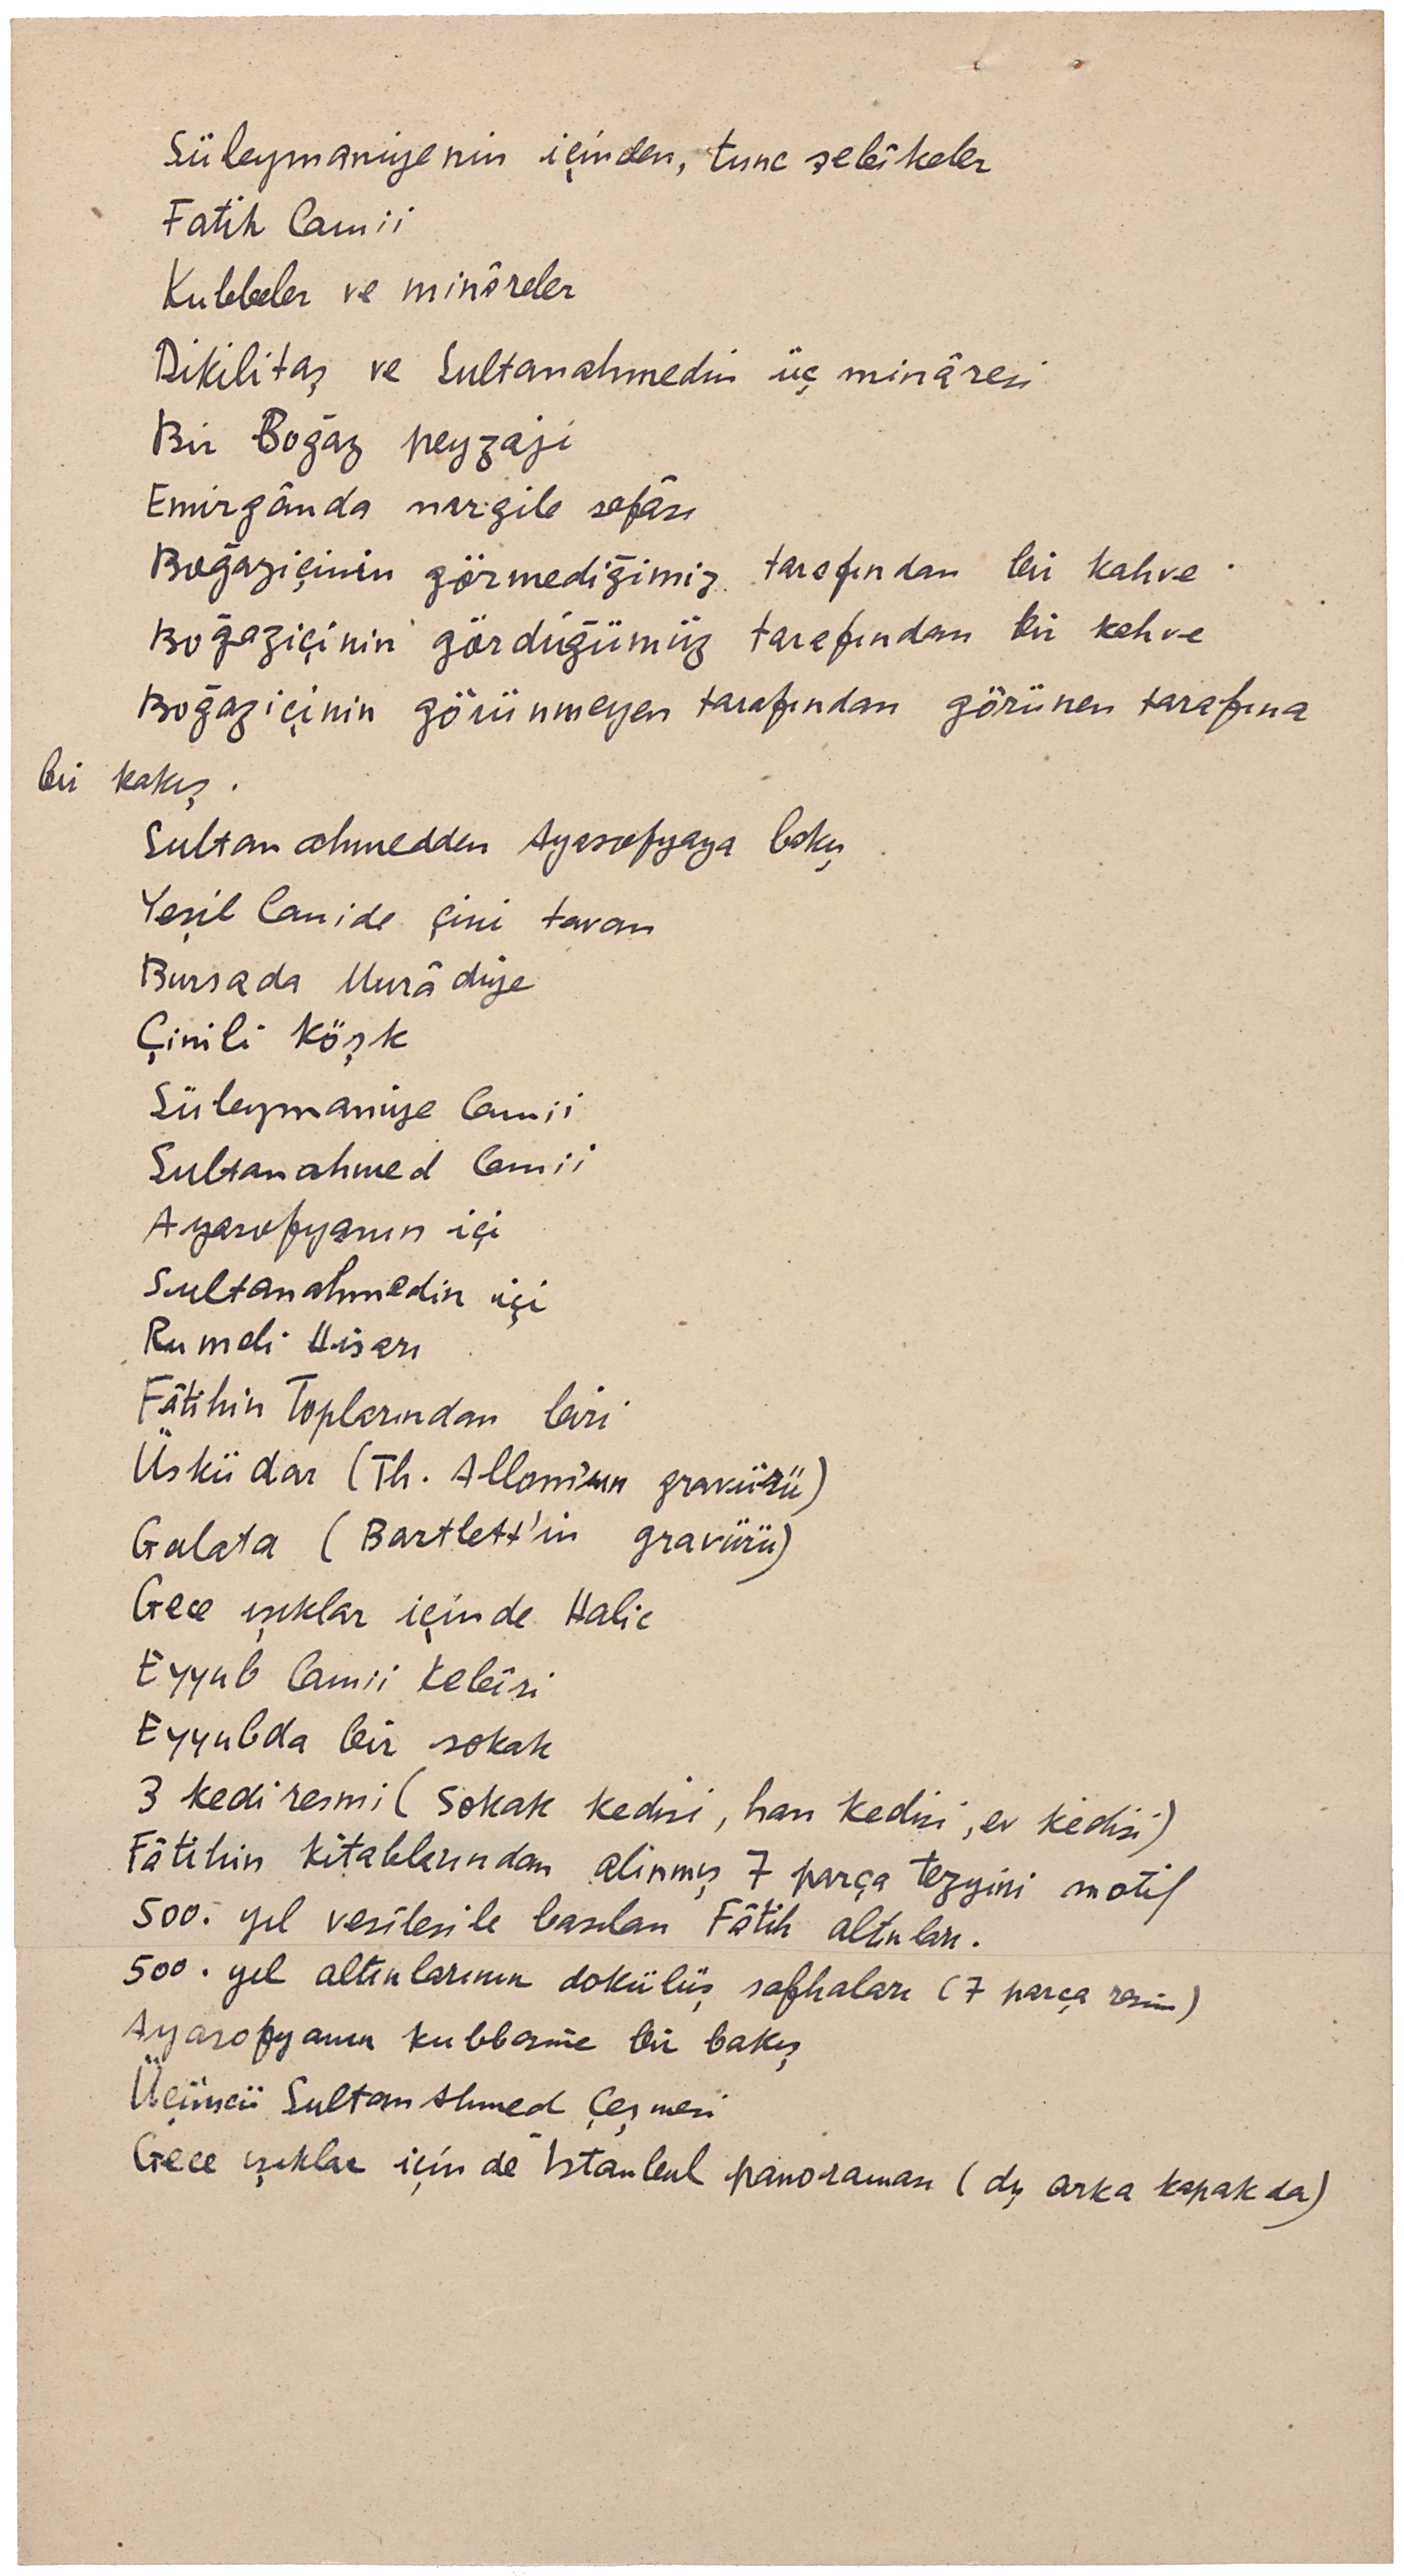 Süleymaniyenin içinden, tunc şebîkeler
Fatih Camii
Kubbeler ve minâreler
Dikilitaş ve Sultanahmedin üç minâresi
Bir Boğaz peyzajı
Emirgânda nargile sefâsı
Boğaziçinin görmediğimiz tarafından bir kahve
Boğaziçinin gördüğümüz tarafından bir kahve
Boğaziçinin görünmeyen tarafından görünen tarafına
bir kakış.
Sultanahmedden Ayasofyaya bakış
Yeşil Camide çini tavan
Bursada Murâdiye
Çinili Köşk
Süleymaniye Camii
Sultanahmed Camii
Ayasofyanın içi
Sultanahmedin içi
Rumeli Hisarı
Fâtihin Toplarından biri
Üsküdar (Th. Allom'un gravürü)
Galata (Bartlett'in gravürü)
Gece ışıklar içinde Halic
Eyyub Camii Kebîri
Eyyubda bir sokak
3 kedi resmi (sokak kedisi, han kedisi, ev kedisi)
Fâtihin kitablarından alınmış 7 parça tezyini motif
500. yıl vesîlesile basılan Fâtih altınları.
500. yıl altınlarının dökülüş safhaları (7 parça resim)
Ayasofyanın kubbesine bir bakış
Üçüncü Sultan Ahmed Çeşmesi
Gece ışıklar içinde İstanbul panoraması (dış arka kapakda)